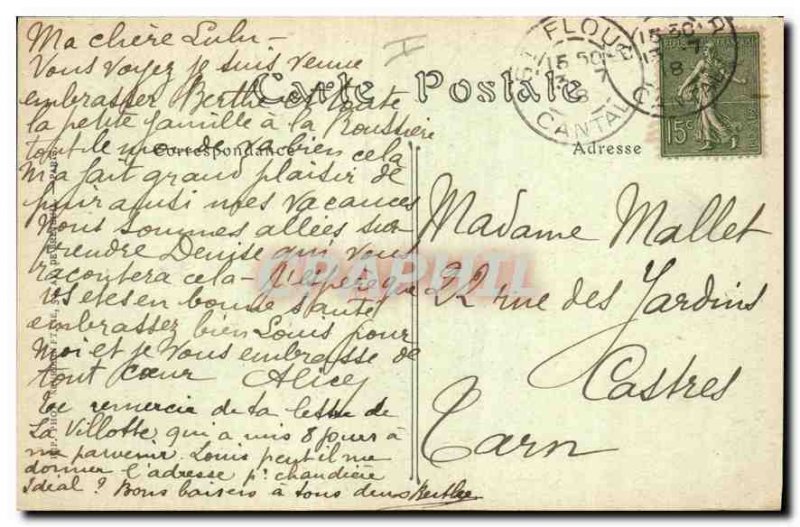 Ma chère Lulu -
Vous voyez je suis venue
embrasser Berthe et toute
la petite famille à la Roussière
tout le monde va bien cela
m'a fait grand plaisir de
finir ainsi mes vacances
nous sommes allées sur
prendre Denise qui vous
racontera cela - J'espère que
vs etes en bonne santé
embrassez bien Louis pour
moi et je vous embrasse de
tout cœur Alice
Te remercie de ta lettre de
La Villotte qui a mis 8 jours à
me parvenir. Louis peut il me
donner l'adresse pr chaudière
Idéal ? Bons baisers à tous deux Berthe
Carte Postale
Correspondance
Adresse
ST FLOUR
15 30
CANTAL
15 30
CANTAL
15c
Madame Mallet
22 rue des Jardins
Castres
Tarn
CPAPHIL